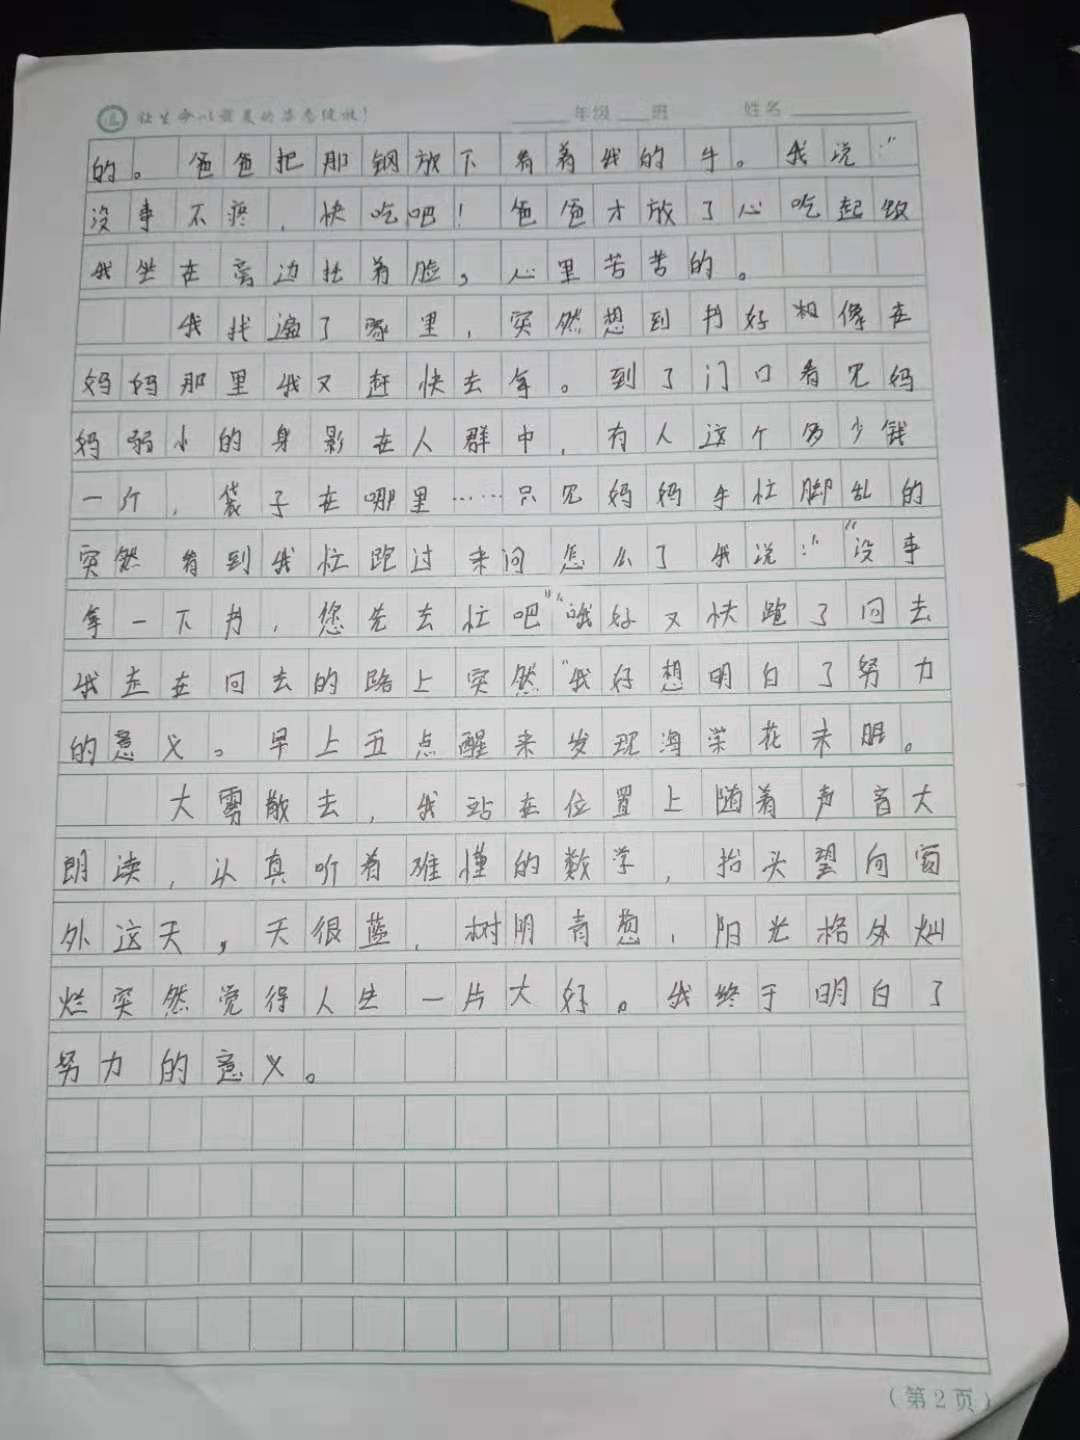 让生命以最美的姿态绽放！ 年级 班 姓名
的。爸爸把那钢放下看着我的牛。我说“
没事不疼，快吃吧！爸爸才放了心吃起饭
我坐在旁边托着脸，心里苦苦的。
我找遍了家里，突然想到书好相像在
妈妈那里我又赶快去拿。到了门口看见妈
妈弱小的身影在人群中，有人这个多少钱
一个，袋子在哪里……只见妈妈手忙脚乱的
突然看到我忙跑过来问怎么了我说：“没事
拿一下书，您先去忙吧”“哦好又快跑了回去
我走在回去的路上突然“我好想明白了努力
的意义。早上五点醒来发现海棠花未眠。
大雾散去，我站在位置上随着声音大
朗读，认真听着难懂的数学，抬头望向窗
外这天，天很蓝，树阴青葱，阳光格外灿
烂突然觉得人生一片大好。我终于明白了
努力的意义。
（第2页）